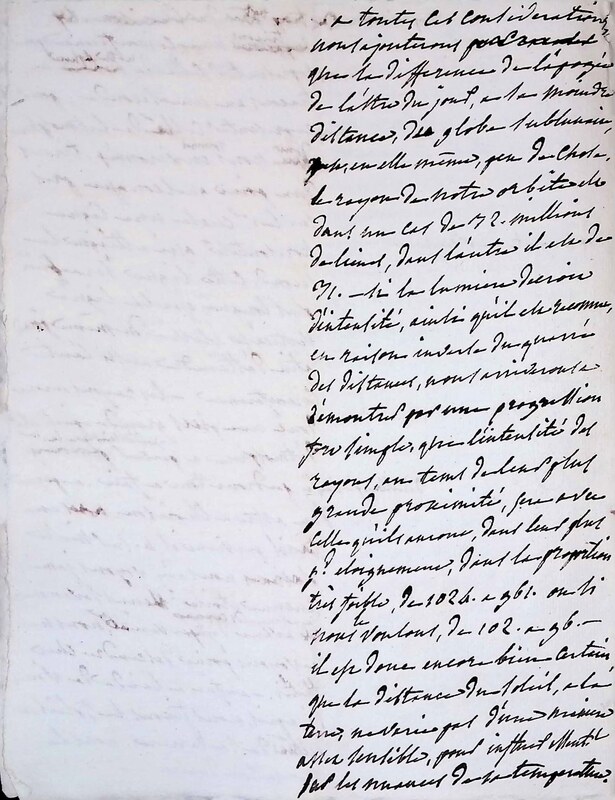 a toutes ces considerations
nous ajouterons
que la difference de lapogée
de l'astre du jour, a la moindre
distance, du globe sublunaire,
en elle même, peu de chose,
le rayon de notre orbite est
dans un cas de 32. millions
de lieues, dans l'autre il est de
31. — si la lumiere decroit
d'intensité, ainsi qu'il est reconnu,
en raison inverse du quarré
des distances, nous arriverons a
démontrer par une progression
fort simple, que l'intensité des
rayons, au tems de leur plus
grande proximité, sera avec
celle qu'ils auront, dans leur plus
gd. eloignement, dans la proportion
très foible, de 1024. a 961. ou si
nous le voulons, de 102. a 96. —
il est donc encore bien certain
que la distance du soleil, a la
terre, ne varie pas d'une maniere
assez sensible, pour
par les nuances de sa temperature.